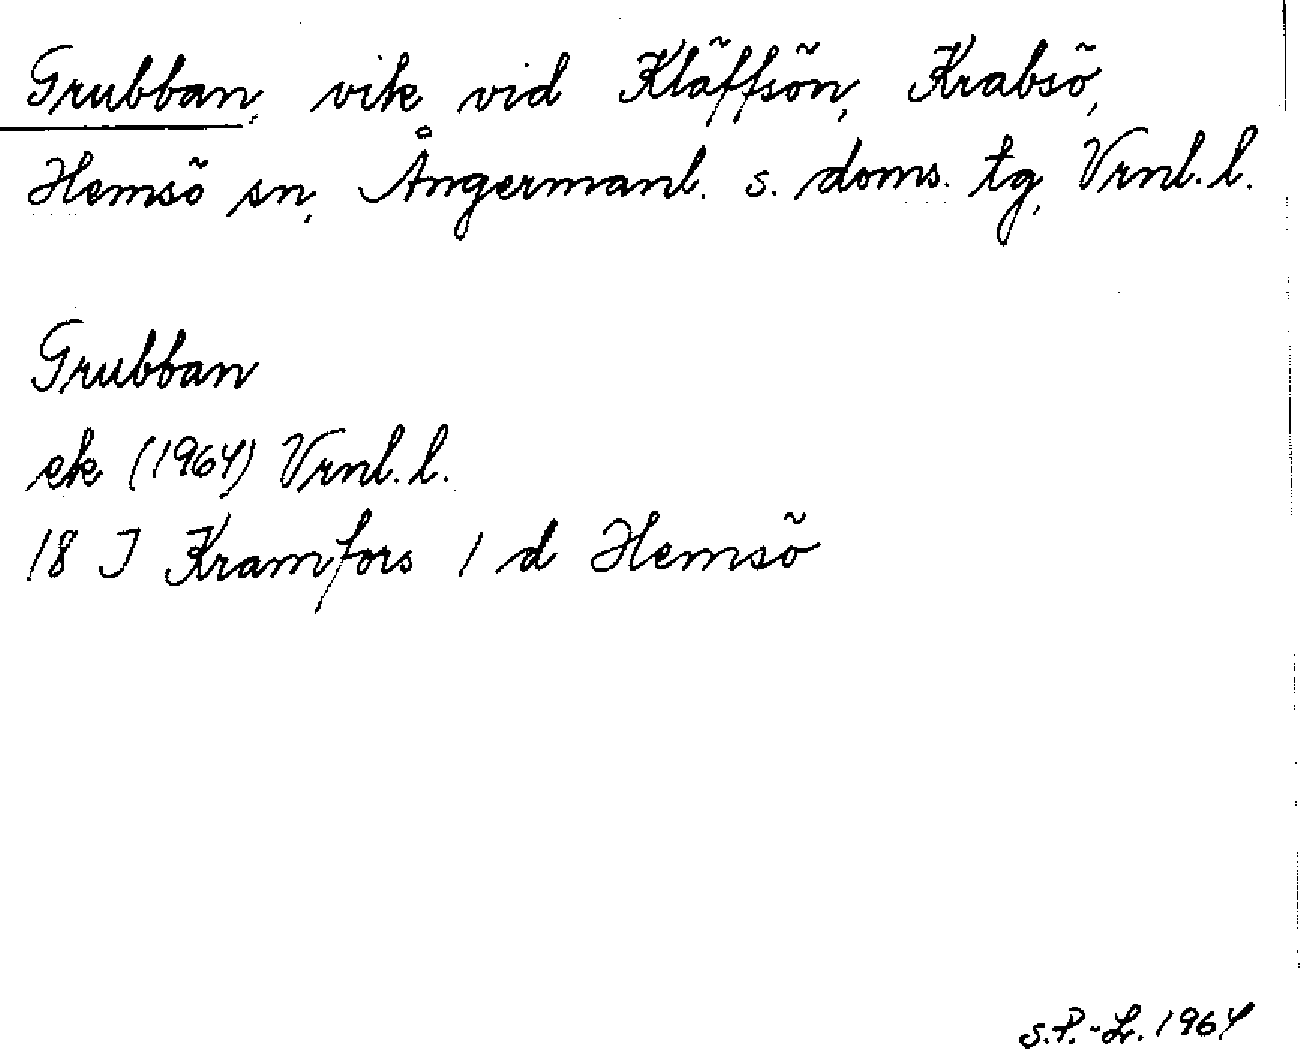 Grubban, vik vid Kläffsön, Krabsö,
Hemsö sn, Ångermanl. s. doms. tg, Vrnl. l.
Grubban
ek (1964) Vrnl. l.
18 I Kramfors 1 d Hemsö
S.P.-L. 1964